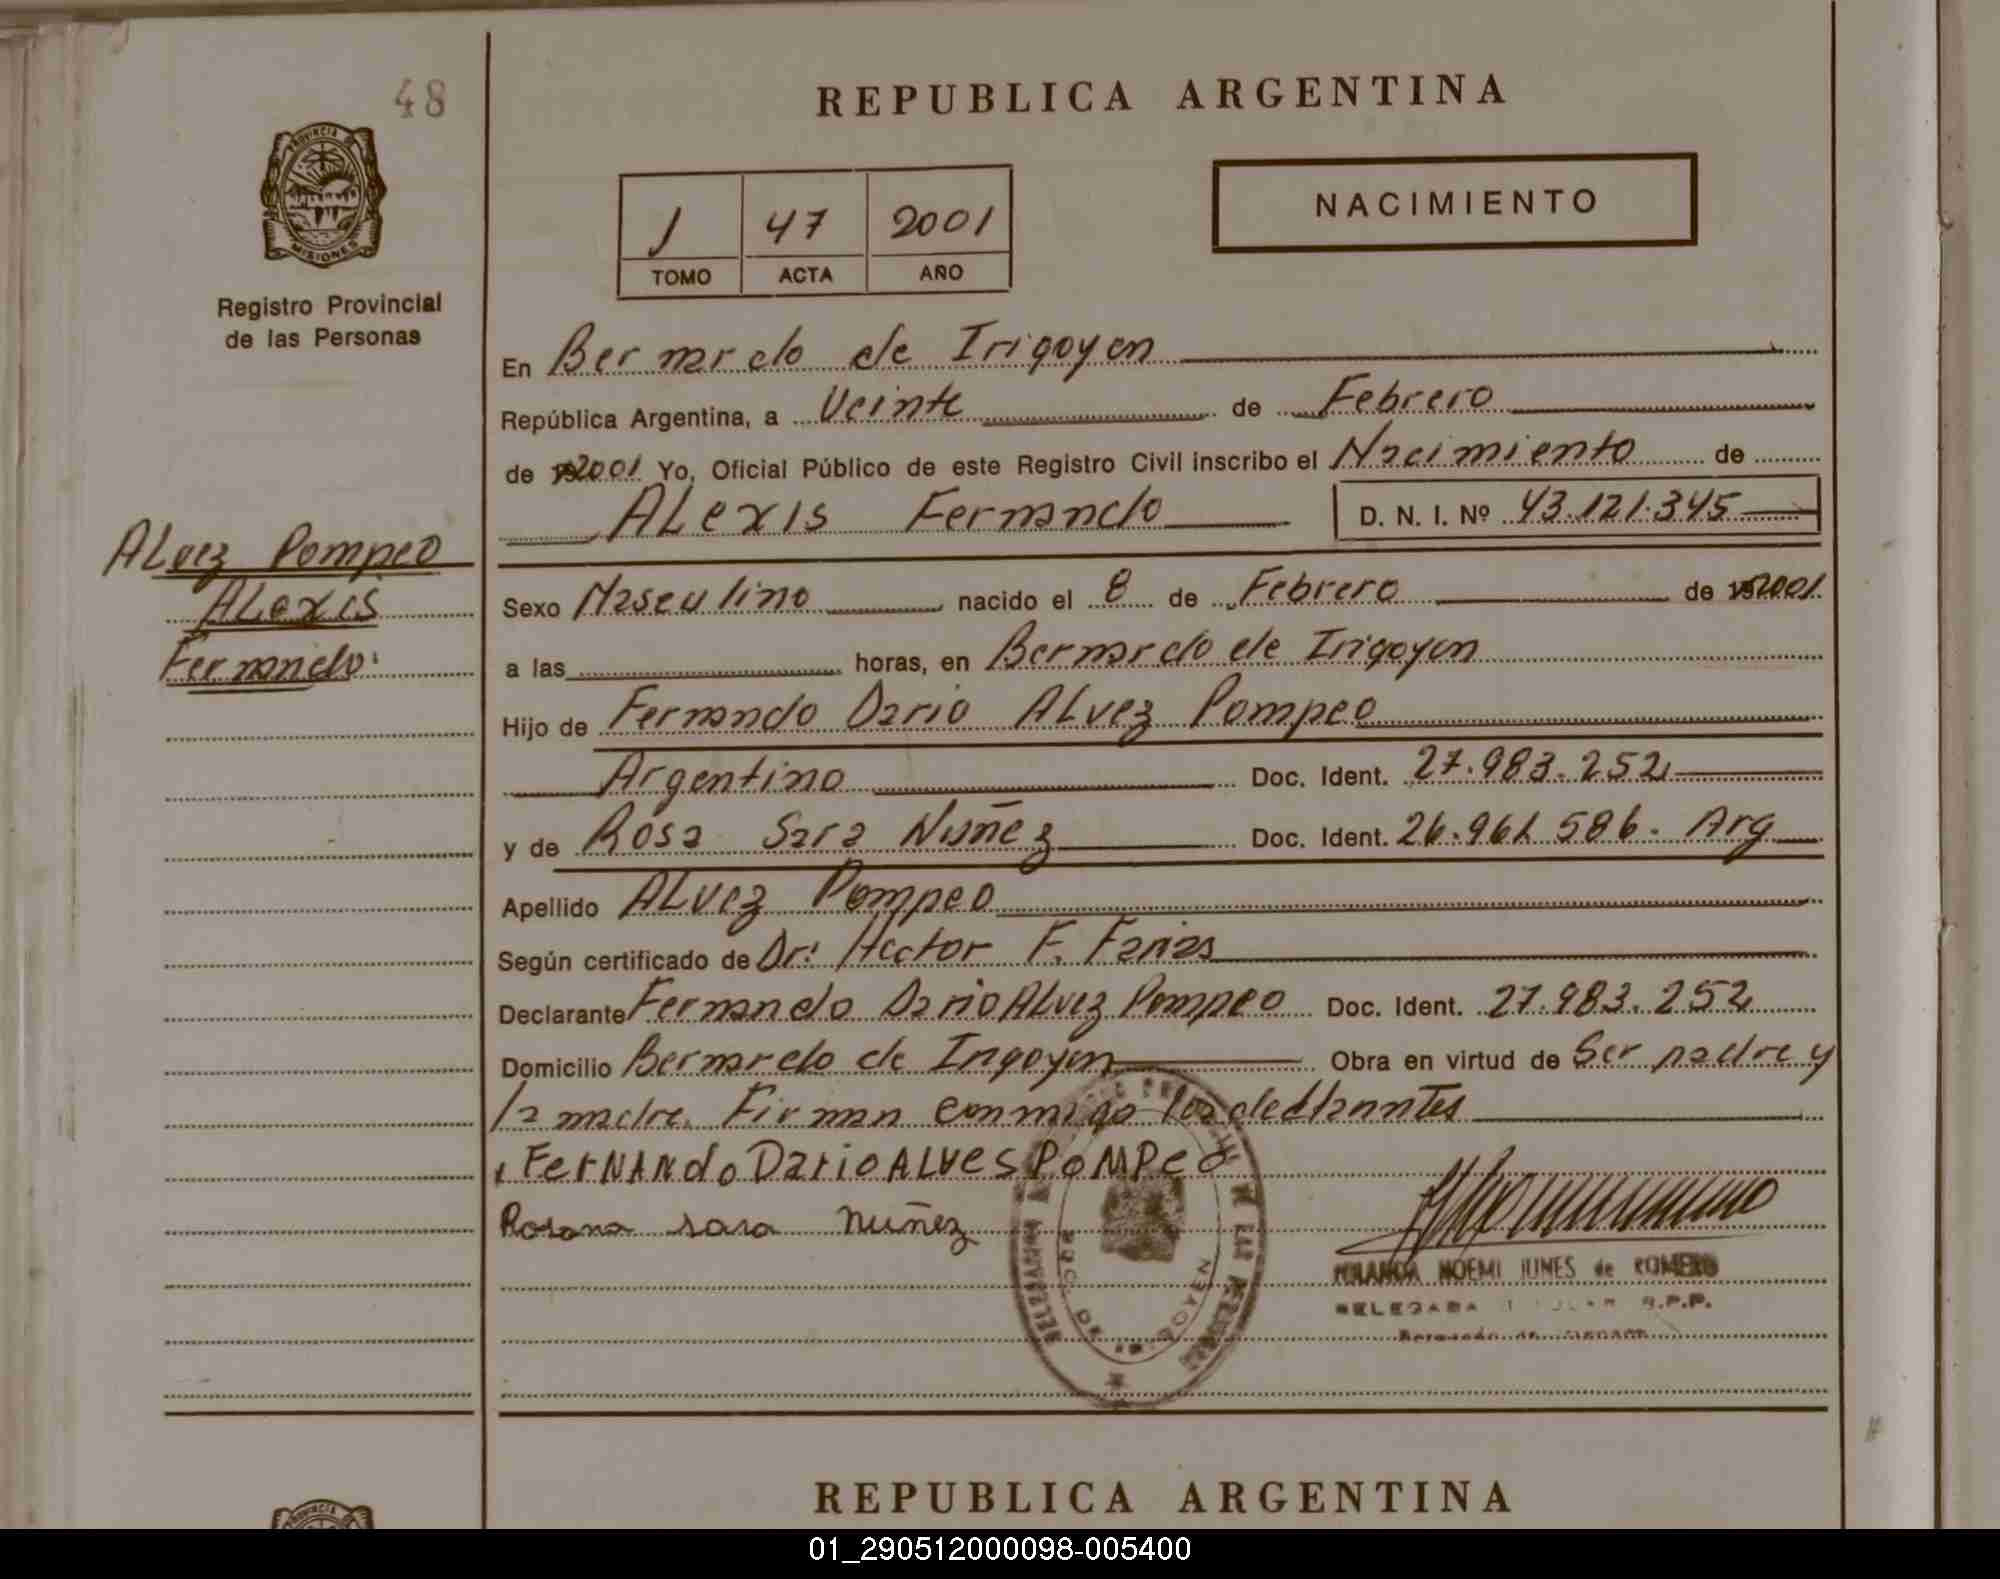 48
REPUBLICA ARGENTINA
PROVINCIA DE MISIONES
NACIMIENTO
1 47 2001
TOMO ACTA AÑO
Registro Provincial
de las Personas
En Bernardo de Irigoyen
República Argentina, a Veinte de Febrero
de 2001 Yo, Oficial Público de este Registro Civil inscribo el Nacimiento de
ALexis Fernando D. N. I. Nº 43.121.345
ALvez Pompeo
ALexis
Fernando
Sexo Masculino nacido el 8 de Febrero de 2001
a las horas, en Bernardo de Irigoyen
Hijo de Fernando Dario ALvez Pompeo
Argentino Doc. Ident. 27.983.252
y de Rosa Sara Nuñez Doc. Ident. 26.961.586. Arg
Apellido ALvez Pompeo
Según certificado de Dr: Hector F. Farias
Declarante Fernando Dario ALvez Pompeo Doc. Ident. 27.983.252
Domicilio Bernardo de Irigoyen Obra en virtud de Ser padre y
la madre. Firman conmigo los declarantes
FerNANdo Dario ALves PoMPeo
Rosana sara nuñez
NOEMI IUNES de ROMERO
DELEGADA R.P.P.
REPUBLICA ARGENTINA
PROVINCIA
01_290512000098-005400